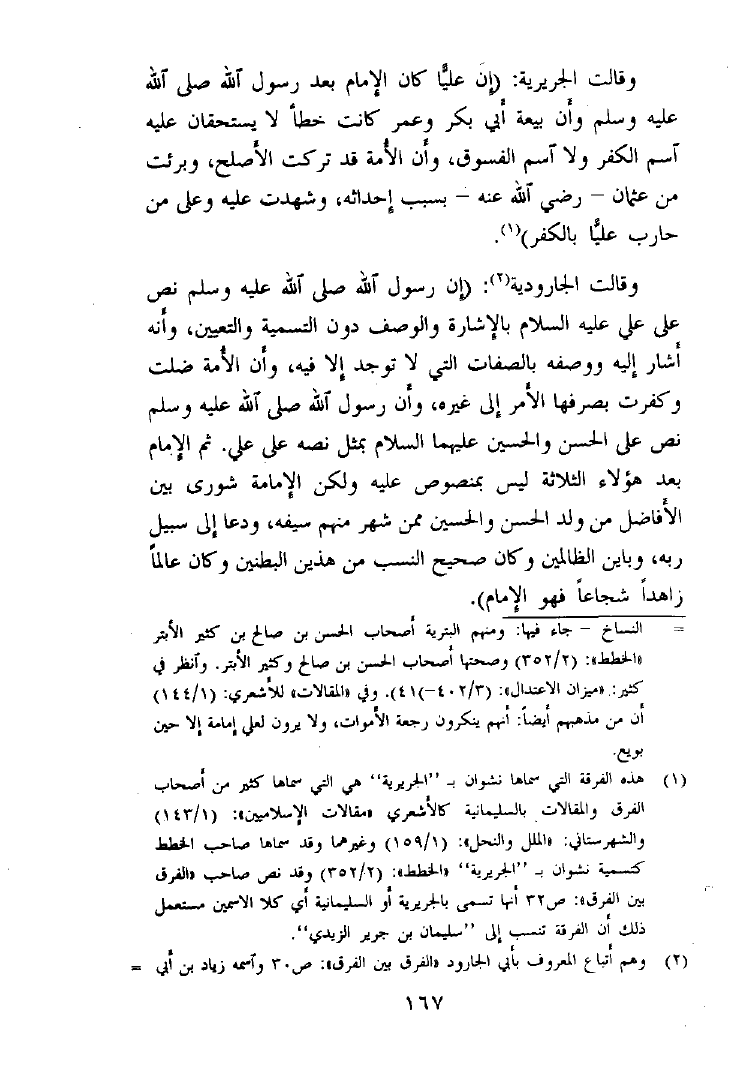 وقالت الجريرية: (إن عليًّا كان الإمام بعد رسول ٱلله صلى ٱلله
عليه وسلم وأن بيعة أبي بكر وعمر كانت خطأ لا يستحقان عليه
ٱسم الكفر ولا ٱسم الفسوق، وأن الأُمة قد تركت الأصلح، وبرئت
من عثمان – رضي ٱلله عنه – بسبب إحداثه، وشهدت عليه وعلى من
حارب عليًّا بالكفر)(١).
وقالت الجارودية(٢): (إن رسول ٱلله صلى ٱلله عليه وسلم نص
على علي عليه السلام بالإشارة والوصف دون التسمية والتعيين، وأنه
أشار إليه ووصفه بالصفات التي لا توجد إلا فيه، وأن الأُمة ضلت
وكفرت بصرفها الأمر إلى غيره، وأن رسول ٱلله صلى ٱلله عليه وسلم
نص على الحسن والحسين عليهما السلام بمثل نصه على علي. ثم الإمام
بعد هؤلاء الثلاثة ليس بمنصوص عليه ولكن الإمامة شورى بين
الأفاضل من ولد الحسن والحسين ممن شهر منهم سيفه، ودعا إلى سبيل
ربه، وباين الظالمين وكان صحيح النسب من هذين البطنين وكان عالماً
زاهداً شجاعاً فهو الإمام).
= النساخ – جاء فيها: ومنهم البترية أصحاب الحسن بن صالح بن كثير الأبتر
«الخطط»: (٣٥٢/٢) وصحتها أصحاب الحسن بن صالح وكثير الأبتر. وٱنظر في
كثير: «ميزان الاعتدال»: (٤٠٢/٣–٤١). وفي «المقالات» للأشعري: (١٤٤/١)
أن من مذهبهم أيضاً: أنهم ينكرون رجعة الأموات، ولا يرون لعلي إمامة إلا حين
بويع.
(١) هذه الفرقة التي سماها نشوان بـ "الجريرية" هي التي سماها كثير من أصحاب
الفرق والمقالات بالسليمانية كالأشعري «مقالات الإسلاميين»: (١٤٣/١)
والشهرستاني: «الملل والنحل»: (١٥٩/١) وغيرهما وقد سماها صاحب الخطط
كتسمية نشوان بـ "الجريرية" «الخطط»: (٣٥٢/٢) وقد نص صاحب «الفرق
بين الفرق»: ص٣٢ أنها تسمى بالجريرية أو السليمانية أي كلا الاسمين مستعمل
ذلك أن الفرقة تنسب إلى "سليمان بن جرير الزيدي".
(٢) وهم أتباع المعروف بأبي الجارود «الفرق بين الفرق»: ص٣٠ وٱسمه زياد بن أبي =
١٦٧